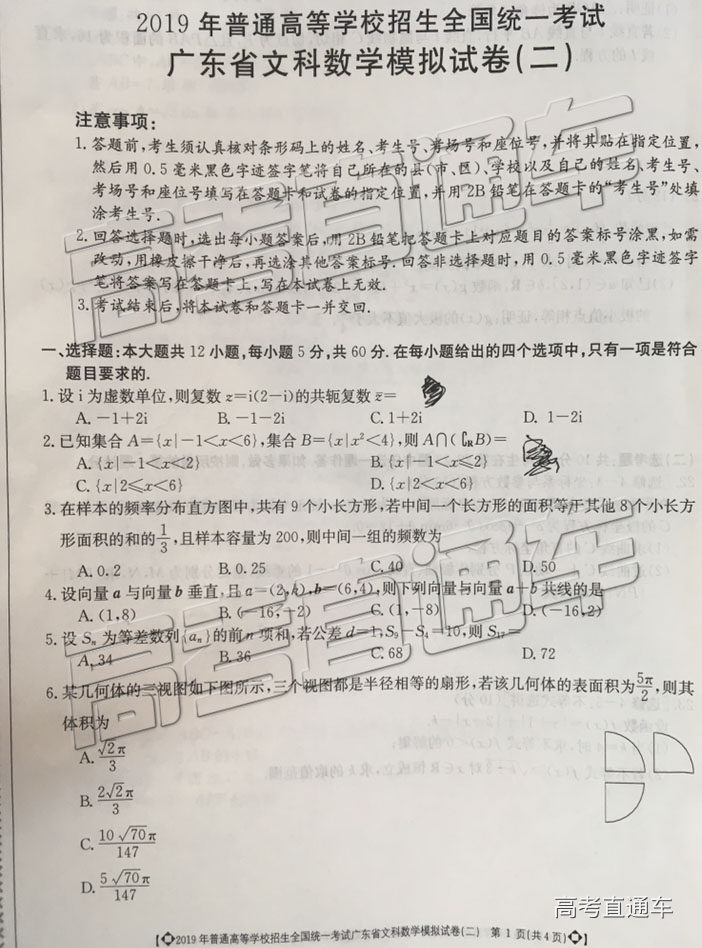 2019年普通高等学校招生全国统一考试
广东省文科数学模拟试卷(二)
注意事项:
1.答题前,考生须认真核对条形码上的姓名、考生号、考场号和座位号,并将其贴在指定位置,
然后用0.5毫米黑色字迹签字笔将自己所在的县(市、区)、学校以及自己的姓名、考生号、
考场号和座位号填写在答题卡和试卷的指定位置,并用2B铅笔在答题卡的“考生号”处填
涂考生号.
2.回答选择题时,选出每小题答案后,用2B铅笔把答题卡上对应题目的答案标号涂黑,如需
改动,用橡皮擦干净后,再选涂其他答案标号.回答非选择题时,用0.5毫米黑色字迹签字
笔将答案写在答题卡上,写在本试卷上无效.
3.考试结束后,将本试卷和答题卡一并交回.
一、选择题:本大题共12小题,每小题5分,共60分.在每小题给出的四个选项中,只有一项是符合
题目要求的.
1.设i为虚数单位,则复数z=i(2-i)的共轭复数z̅=
A.-1+2i B.-1-2i C.1+2i D.1-2i
2.已知集合A={x|-1<x<6},集合B={x|x²<4},则A∩(∁RB)=
A.{x|-1<x<2} B.{x|-1<x≤2}
C.{x|2≤x<6} D.{x|2<x<6}
3.在样本的频率分布直方图中,共有9个小长方形,若中间一个长方形的面积等于其他8个小长方
形面积的和的1/3,且样本容量为200,则中间一组的频数为
A.0.2 B.0.25 C.40 D.50
4.设向量a与向量b垂直,且a=(2,k),b=(6,4),则下列向量与向量a+b共线的是
A.(1,8) B.(-16,-2) C.(1,-8) D.(-16,2)
5.设Sn为等差数列{an}的前n项和,若公差d=1,S9-S4=10,则S17=
A.34 B.36 C.68 D.72
6.某几何体的三视图如下图所示,三个视图都是半径相等的扇形,若该几何体的表面积为5π/2,则其
体积为
A.√2π/3
B.2√2π/3
C.10√70π/147
D.5√70π/147
【2019年普通高等学校招生全国统一考试广东省文科数学模拟试卷(二) 第1页(共4页)】
高考直通车
高考直通车
高考直通车